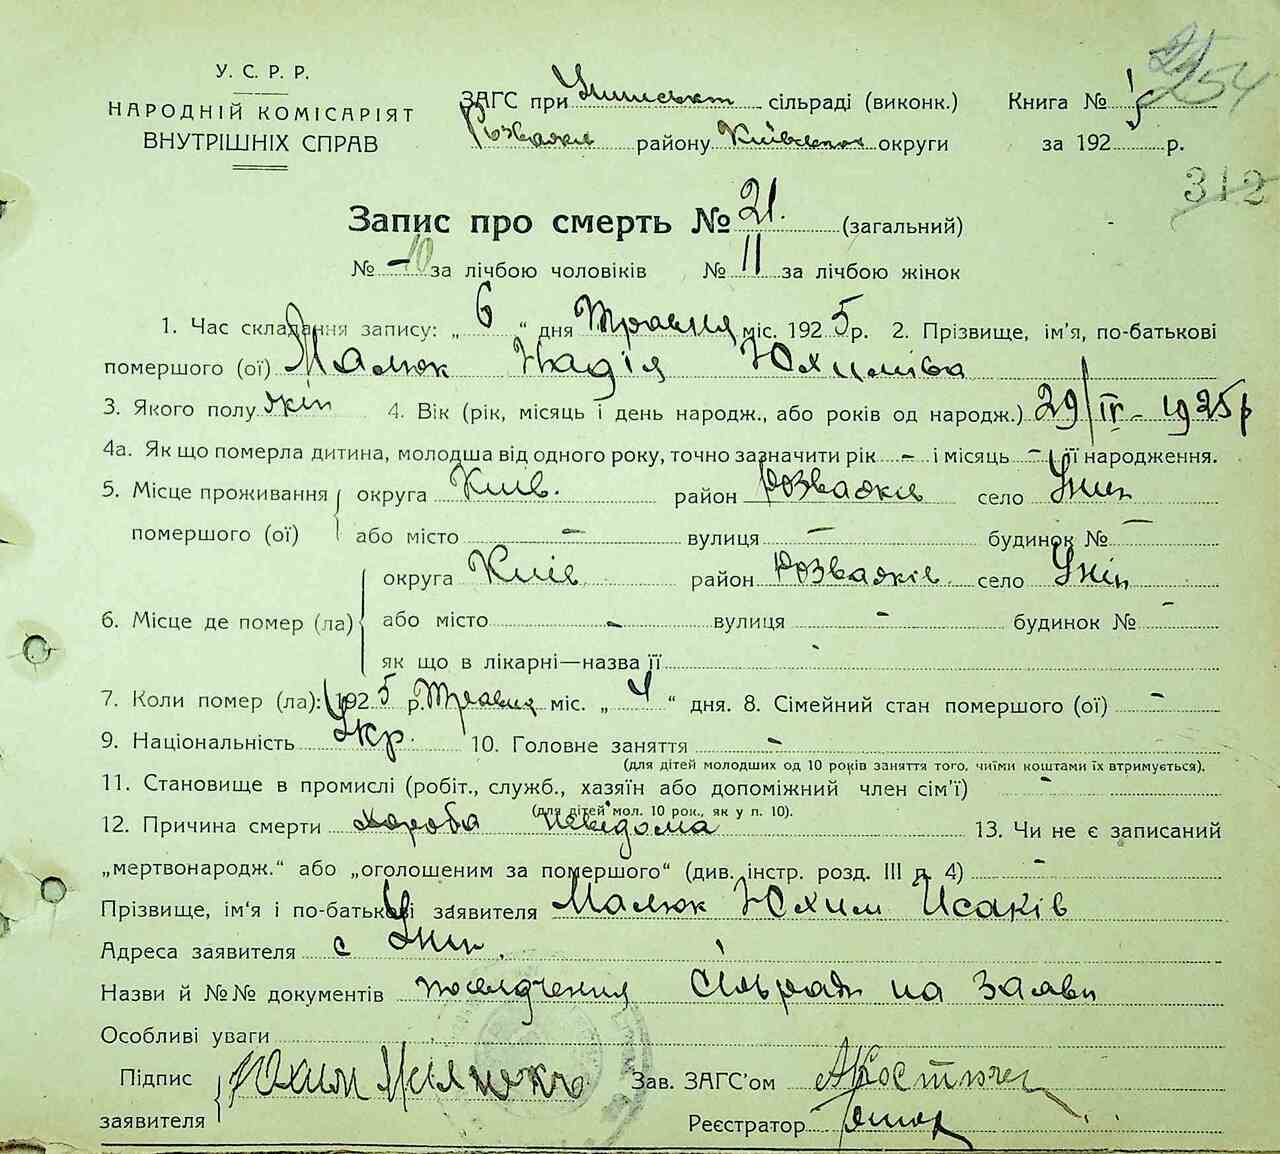 254
У. С. Р. Р.
НАРОДНІЙ КОМІСАРІЯТ
ВНУТРІШНІХ СПРАВ
ЗАГС при сільраді (виконк.)
Розважів району Київської округи
Книга №
за 192 р.
312
Запис про смерть № 21. (загальний)
№ - 10 за лічбою чоловіків № 11 за лічбою жінок
1. Час складання запису: „ 6 “ дня Травня міс. 1925 р. 2. Прізвище, ім'я, по-батькові
помершого (ої) Малюк Надія Юхимівна
3. Якого полу жін 4. Вік (рік, місяць і день народж., або років од народж.) 29/IV - 1925 р
4а. Як що померла дитина, молодша від одного року, точно зазначити рік - і місяць - її народження.
5. Місце проживання округа Київ. район Розважів село Унин
помершого (ої) або місто - вулиця - будинок № -
округа Київ район Розважів село Унін
6. Місце де помер (ла) або місто - вулиця - будинок № -
як що в лікарні—назва її -
7. Коли помер (ла): 1925 р. Травня міс. „ 4 “ дня. 8. Сімейний стан помершого (ої) -
9. Національність Укр. 10. Головне заняття -
(для дітей молодших од 10 років заняття того, чиїми коштами їх втримується).
11. Становище в промислі (робіт., служб., хазяїн або допоміжний член сім'ї) -
(для дітей мол. 10 рок., як у п. 10).
12. Причина смерти хороба невідома 13. Чи не є записаний
„мертвонародж.“ або „оголошеним за помершого“ (див. інстр. розд. III п. 4) -
Прізвище, ім'я і по-батькові заявителя Малюк Юхим Исаків
Адреса заявителя с Унін.
Назви й №№ документів посвідчення сільради на заяви
Особливі уваги
Підпис
заявителя Юхим
Зав. ЗАГС'ом
Реєстратор